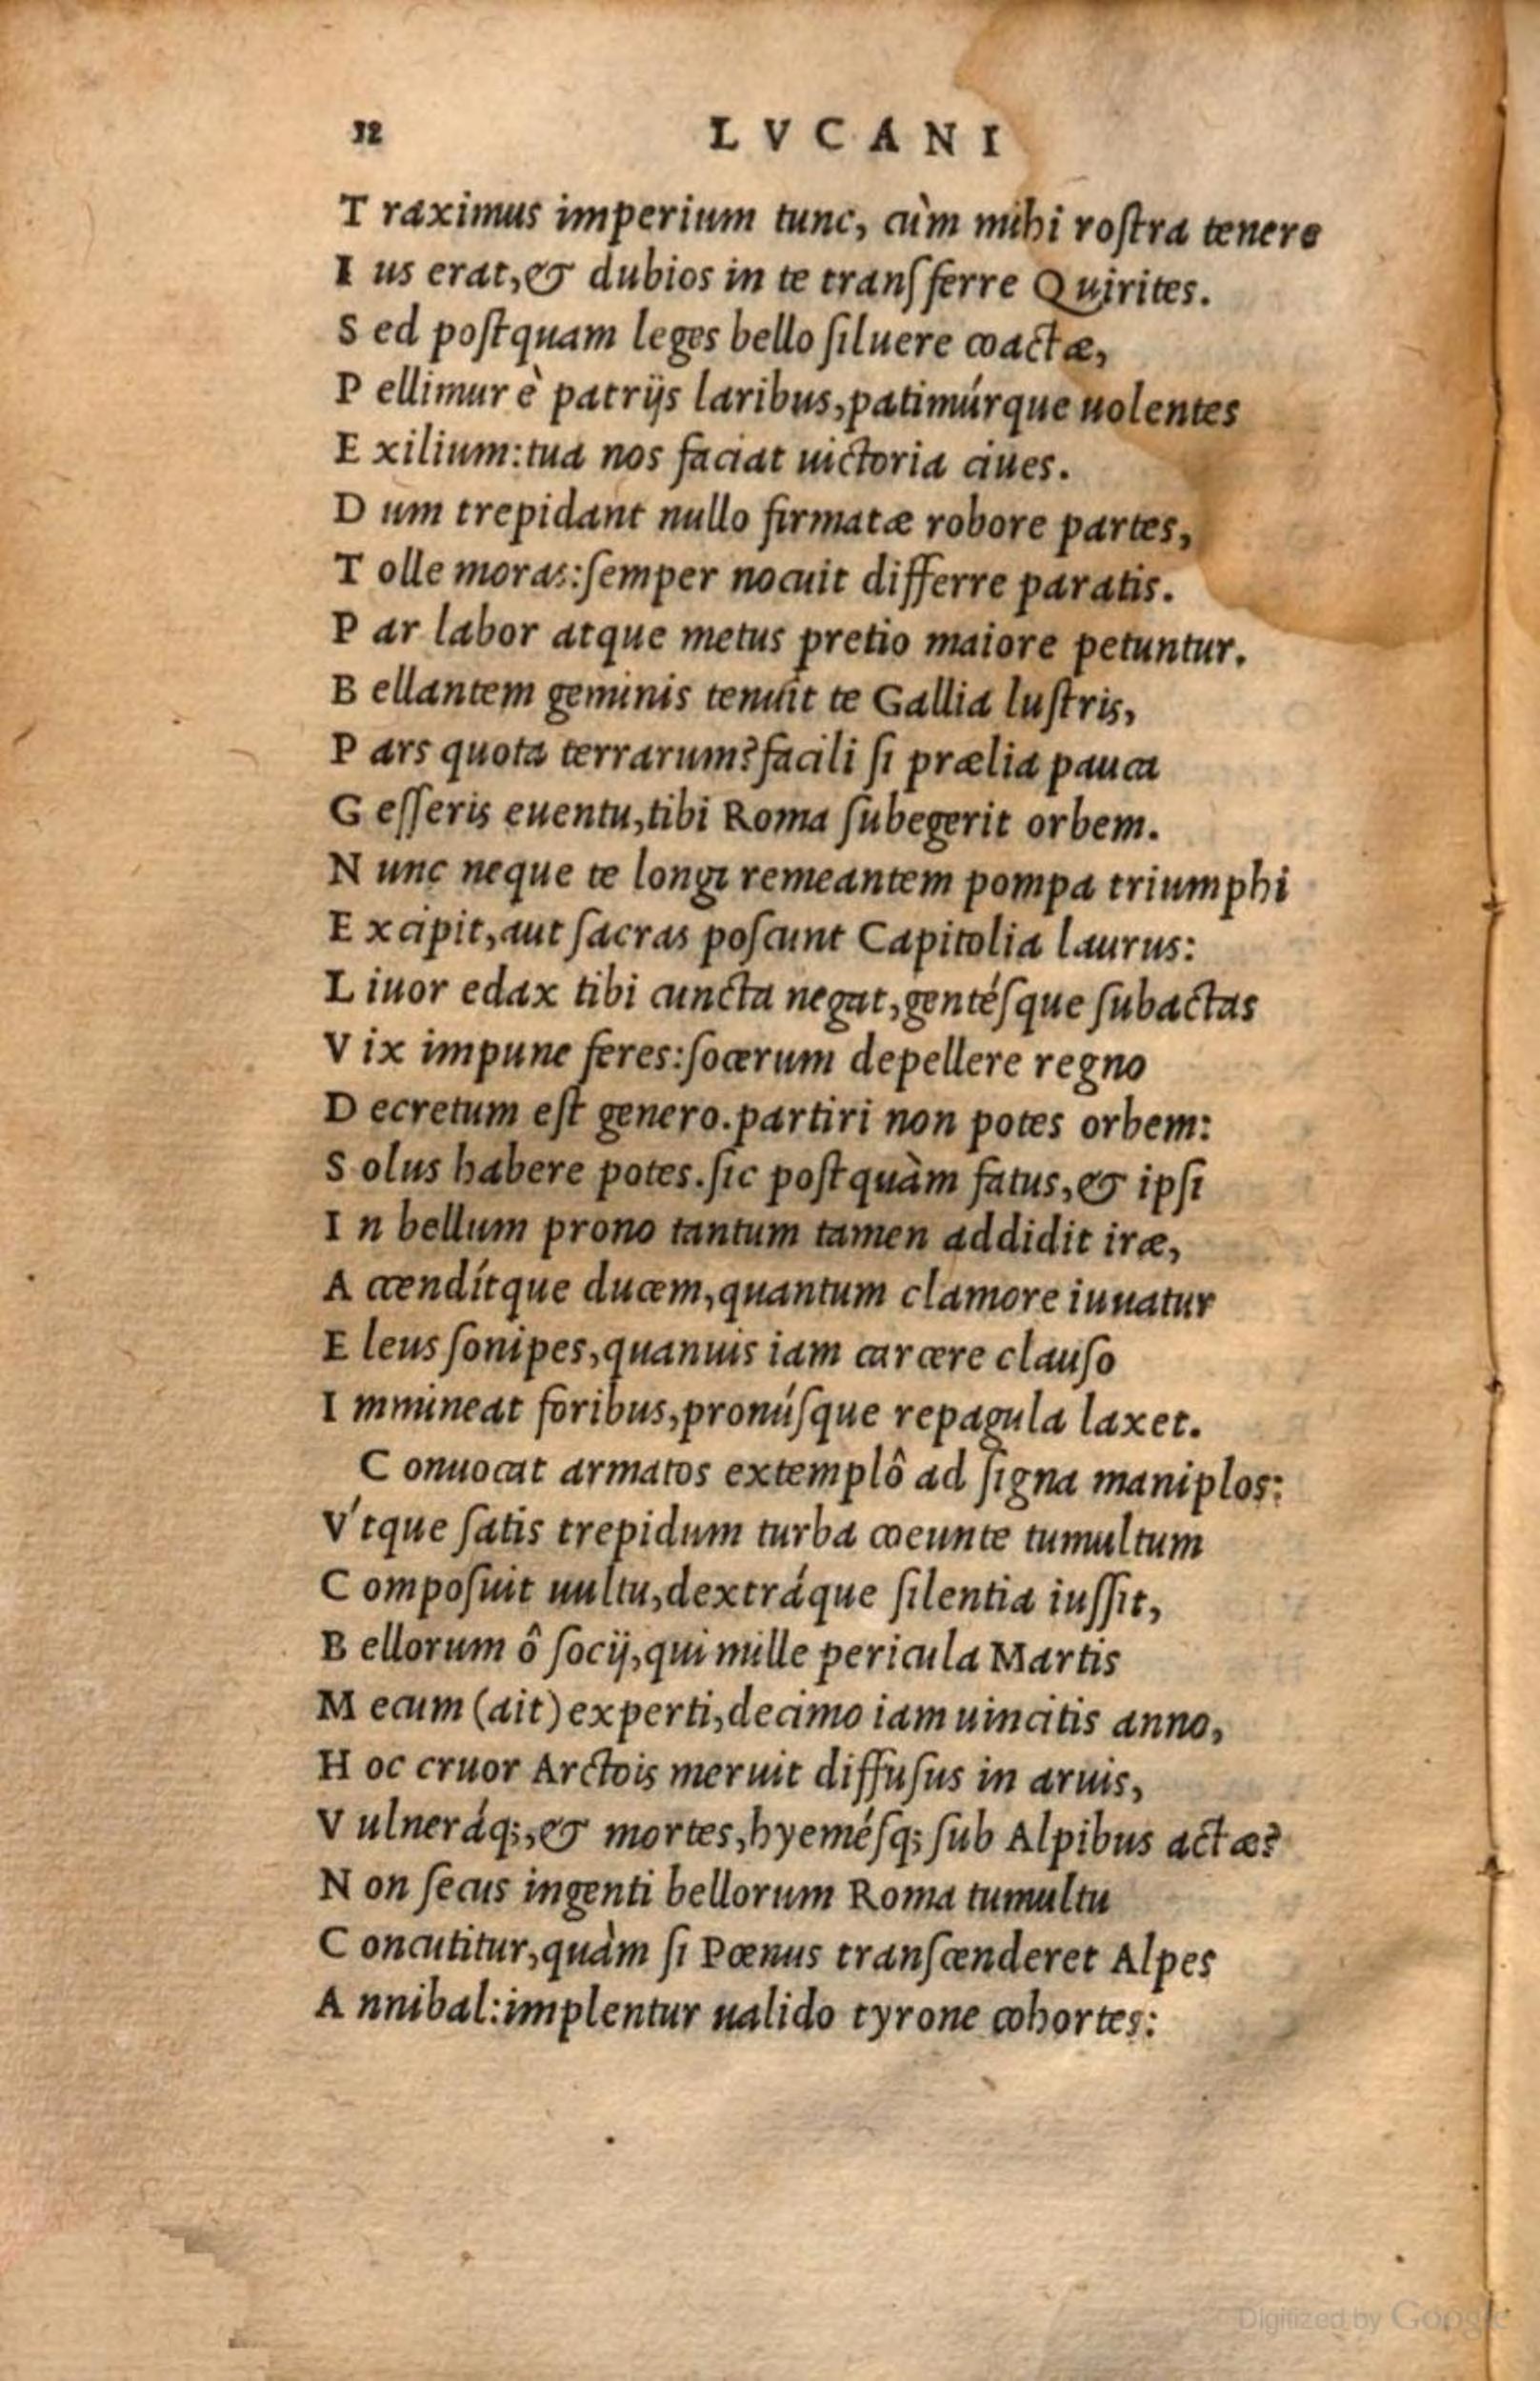 12 LVCANI
T raximus imperium tunc, cùm mihi roſtra tenere
I us erat,& dubios in te tranſferre Quirites.
S ed poſtquam leges bello ſiluere coactæ,
P ellimur è patrijs laribus,patimúrque uolentes
E xilium:tua nos faciat uictoria ciues.
D um trepidant nullo firmatæ robore partes,
T olle moras:ſemper nocuit differre paratis.
P ar labor atque metus pretio maiore petuntur.
B ellantem geminis tenuit te Gallia luſtris,
P ars quota terrarum?facili ſi prælia pauca
G eſſeris euentu,tibi Roma ſubegerit orbem.
N unc neque te longi remeantem pompa triumphi
E xcipit,aut ſacras poſcunt Capitolia laurus:
L iuor edax tibi cuncta negat,gentéſque ſubactas
V ix impune feres:ſocerum depellere regno
D ecretum eſt genero.partiri non potes orbem:
S olus habere potes.ſic poſtquàm fatus,& ipſi
I n bellum prono tantum tamen addidit iræ,
A ccendítque ducem,quantum clamore iuuatur
E leus ſonipes,quanuis iam carcere clauſo
I mmineat foribus,pronúſque repagula laxet.
C onuocat armatos extemplô ad ſigna maniplos:
V́tque ſatis trepidum turba coeunte tumultum
C ompoſuit uultu,dextráque ſilentia iuſſit,
B ellorum ô ſocij,qui mille pericula Martis
M ecum (ait) experti,decimo iam uincitis anno,
H oc cruor Arctois meruit diffuſus in aruis,
V ulneráq;,& mortes,hyeméſq; ſub Alpibus actæ?
N on ſecus ingenti bellorum Roma tumultu
C oncutitur,quàm ſi Pœnus tranſcenderet Alpes
A nnibal:implentur ualido tyrone cohortes:
Digitized by Google